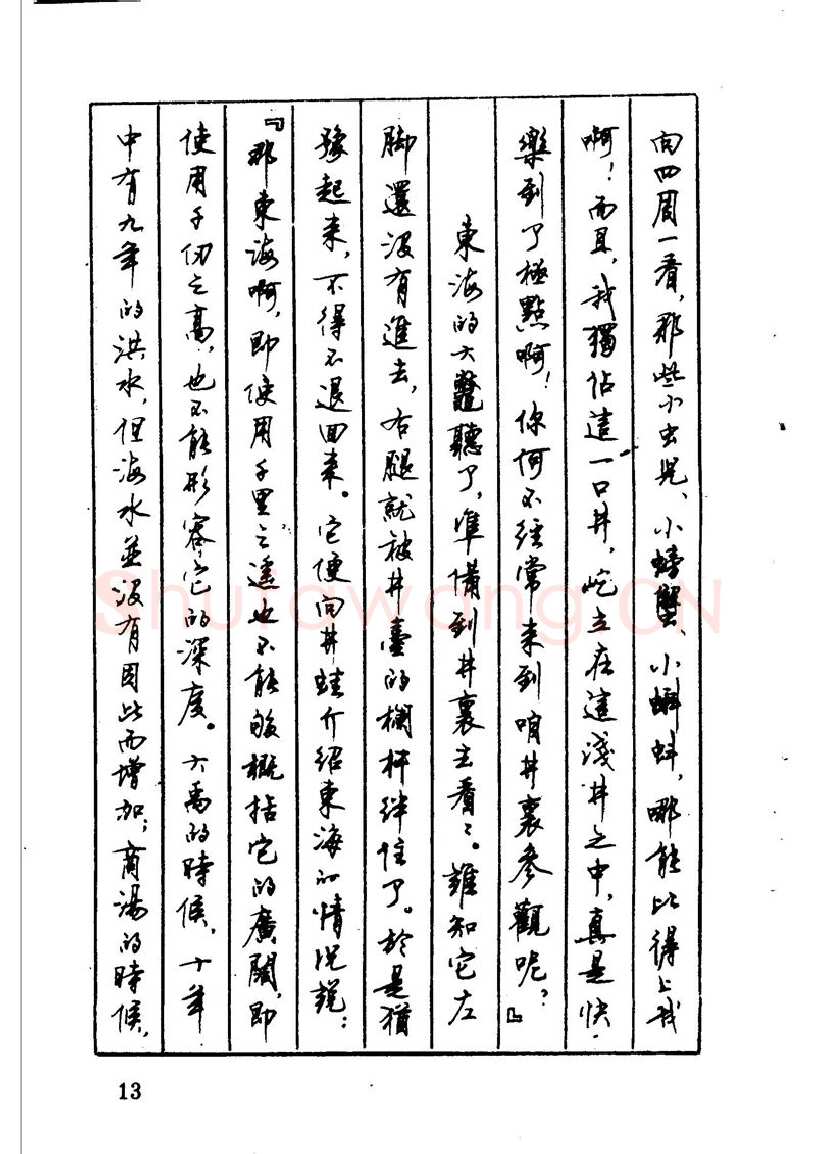 向四周一看，那些小虫児、小螃蟹、小蝌蚪，哪能比得上我
啊！而且，我獨佔這一口井，屹立在這淺井之中，真是快
樂到了極點啊！你何不經常来到咱井裏参觀呢？』
東海的大鼈聽了，準備到井裏去看看。誰知它左
脚還没有進去，右腿就被井臺的欄杆絆住了。於是猶
豫起来，不得不退回来。它便向井蛙介紹東海的情况説：
『那東海啊，即使用千里之遥也不能够概括它的廣闊，即
使用千仞之高，也不能形容它的深度。大禹的時候，十年
中有九年的洪水，但海水並没有因此而增加；商湯的時候，
13
Shufawang.CN